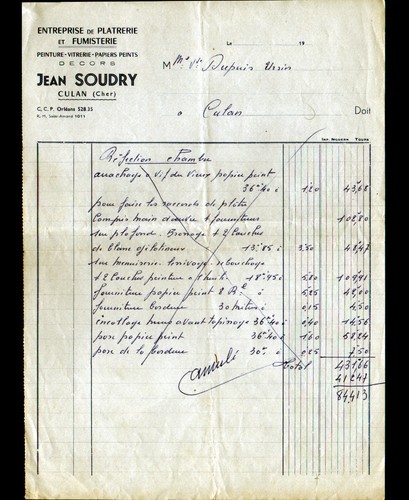 ENTREPRISE DE PLATRERIE
ET FUMISTERIE
PEINTURE - VITRERIE - PAPIERS PEINTS
DECORS
JEAN SOUDRY
CULAN (Cher)
C. C. P. Orléans 528.35
R. M. Saint-Amand 1011
Le 19
M Me Ve Dupuis
à Culan Doit
Réfection chambre
arrachage à vif du vieux papier peint
36.40 à 1,20 43,68
pour faire les raccords de plâtre
Compris main d'œuvre et fournitures 102,80
sur plafond. 2 Couches
de blanc gélatineux 13,85 à 3,50 48,47
sur menuiserie lessivage rebouchage
& 2 Couches peinture à l'huile 18,950 5,80 109,91
Fourniture papier peint 8 Rx 5,25 42,00
Fourniture bordure 30 mètres à 0,15 4,50
encollage murs avant tapissage 36,40 à 0,40 14,56
pose papier peint 36,40 à 1,60 58,24
pose de la bordure 30 à 0,25 7,50
total 431,66
412,47
844,13
annulé